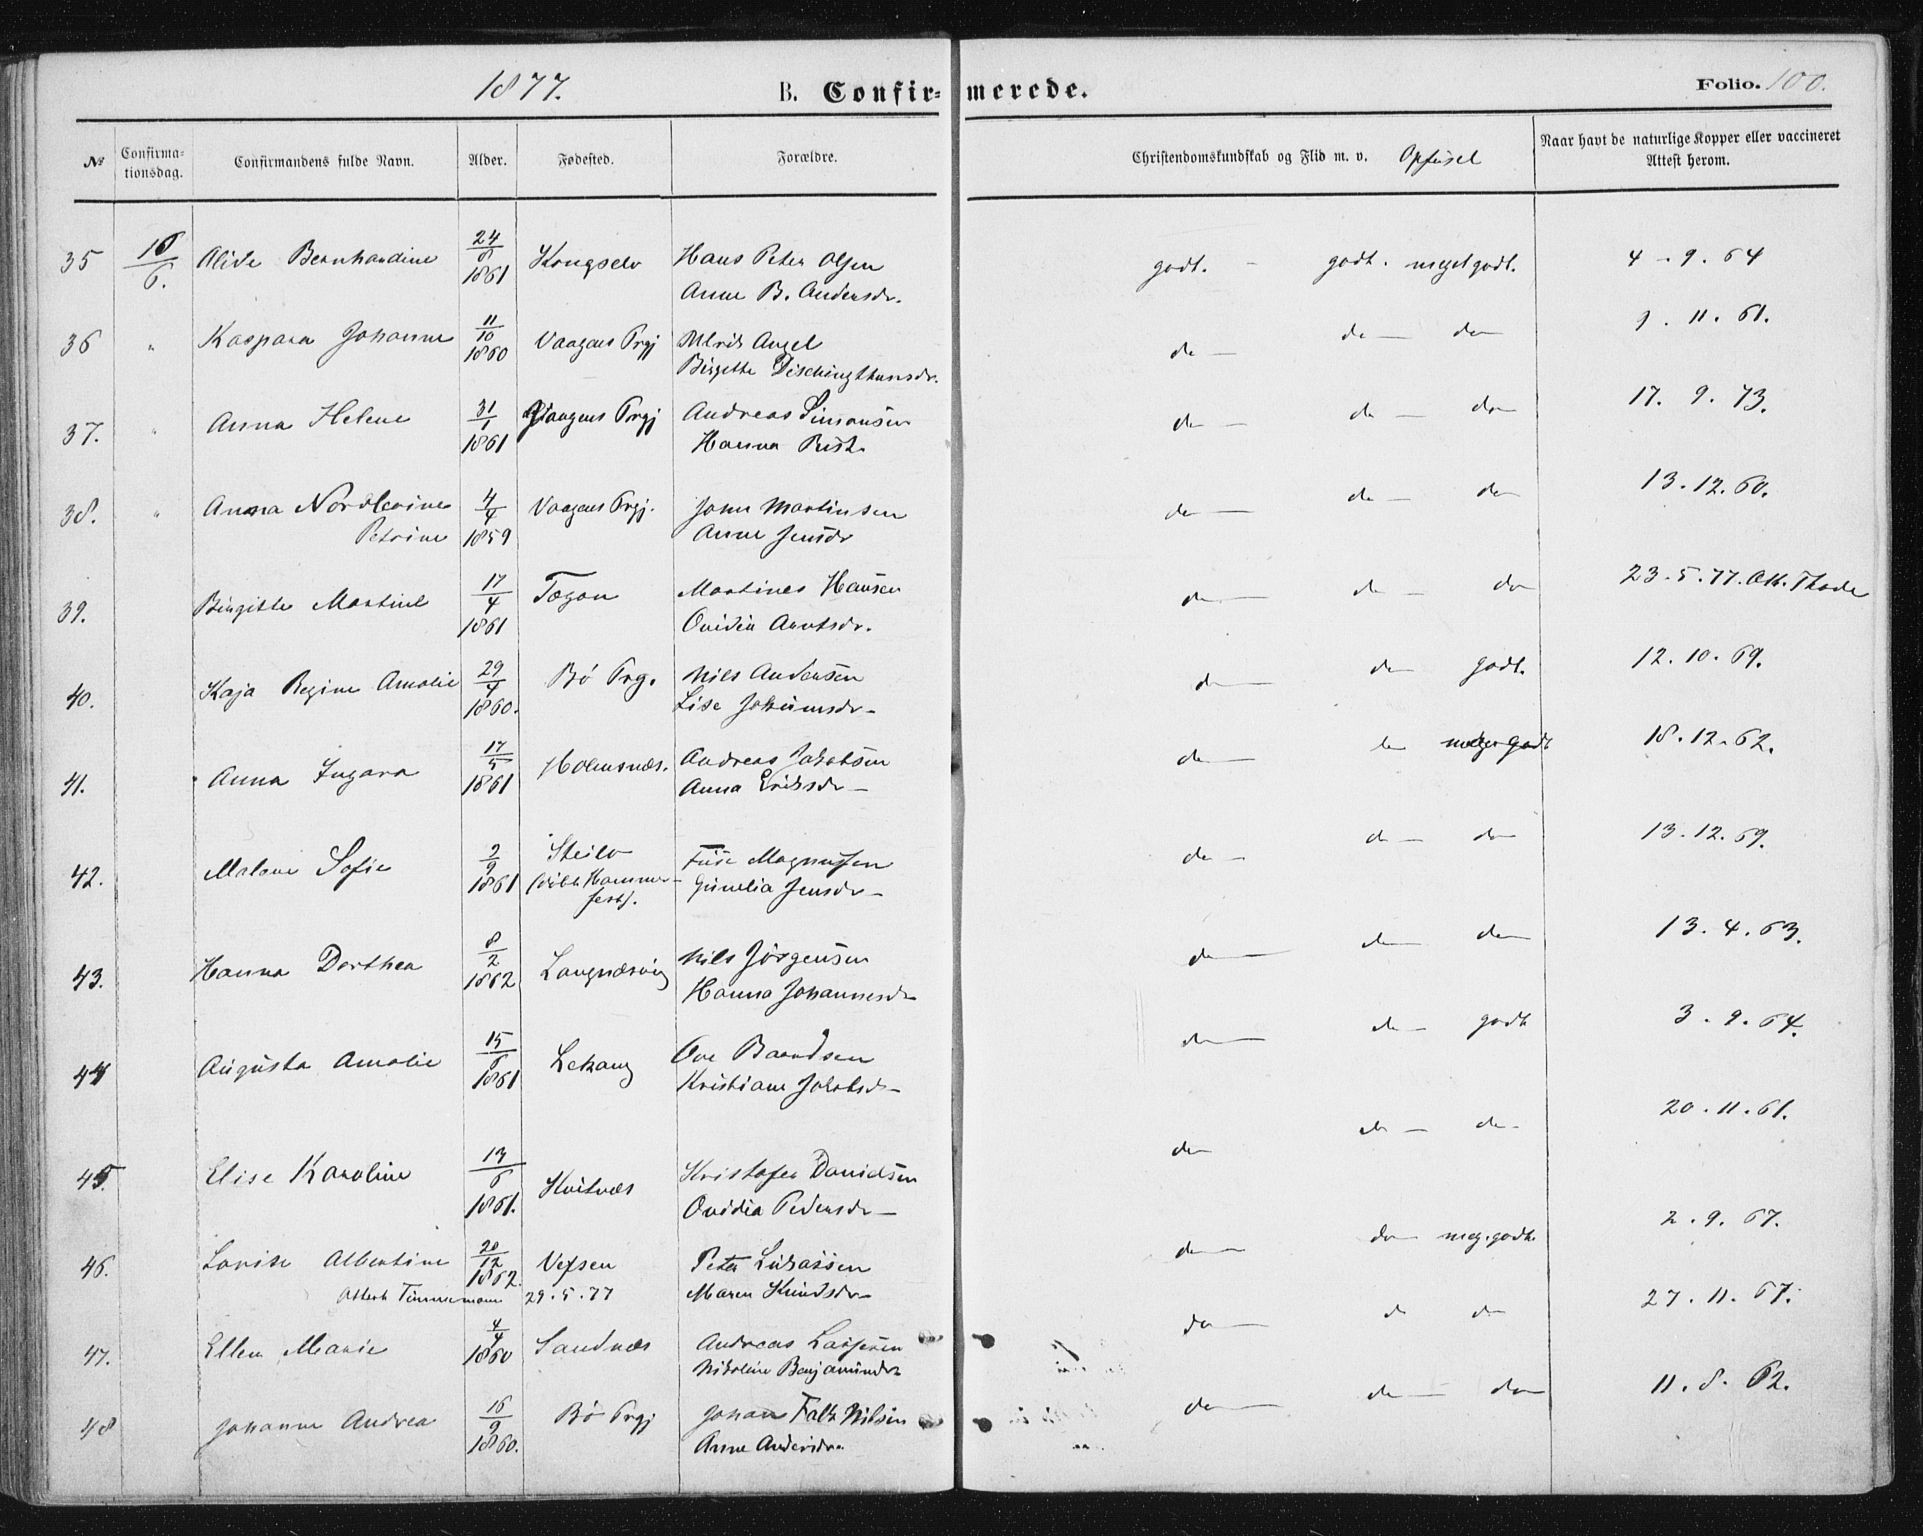 1877.
B. Confir- merede.
Folio. 100.
No Confirmationsdag. Confirmandens fulde Navn. Alder. Fødested. Forældre. Christendomskundskab og Flid m. v. Opførsel Naar havt de naturlige Kopper eller vaccineret Attest herom.
35 10/6. Alide Bernhardine 24/8 1861 Kongselv Hans Peter Olsen godt. - godt. megetgodt. 4 - 9. 64
Anne B. Andersdr.
36 " Kaspara Johanne 11/10 1860 Vaagens Prgj Ulrik Angel do — do — do 9. 11. 61.
Birgitte
37. " Anna Helene 31/1 1861 Vaagens Prgj Andreas Simonsen do — do — do 17. 9. 73.
Hanna
38. " Anna Nordlevine 4/4 1859 Vaagens Prgj. John Martinsen do — do — do 13. 12. 60.
Petrine Anne Jensdr
39. Birgitte Martine 17/4 1861 Martines Hansen do — do — do 23. 5. 77. Att. Thode
Ovidia Arntsdr.
40. Kaja Regine Amalie 29/4 1860. Bø Prg. Nils Andersen do — do godt. 12. 10. 69.
Lise Johansdr—
41. Anna Ingara 17/5 1861 Holmsnæs. Andreas Jakobsen do — do megetgodt 18. 12. 62.
Anna Eriksdr—
42. Malene Sofie 2/9 1861 Steilo Tuse Magnussen do — do — do 13. 12. 69.
(døbt Hammerfest). Gunelia Jensdr—
43. Hanna Dorthea 8/2 1862 Langnæsvig Nils Jörgensen do — do — do 13. 4. 63.
Hanna Johannesdr
44 Augusta Amalie 15/6 1861 Lekang Ove Baardsen do — do — godt 3. 9. 64.
Kristiane Jakobsdr—
45. Elise Karoline 13/6 1861. Kvitnæs Kristofer Danielsen do do — do. 20. 11. 61.
Ovidia Pedersdr—
46. Lovise Albertine 20/12 1862. Vefsen Peter Lukassen do — do meg.godt. 2. 9. 67.
Attest Timmermann 29. 5. 77 Maren Knudsdr
47. Ellen Marie 4/4 1860 Sandnæs Andreas Larsen do — do do 27. 11. 67.
Nikoline Benjaminsdr
48 Johanne Andrea 16/9 1860. Bø Prgj Johan Falk Nilsen do — do — do 11. 8. 62.
Anne Andersdr